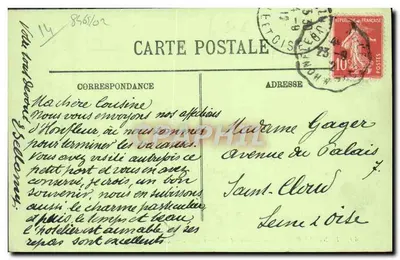 14
8361/02
CARTE POSTALE
CORRESPONDANCE
ADRESSE
REPUBLIQUE FRANCAISE
10
POSTES
Ma chère Cousine
Nous vous envoyons nos affections
d'Honfleur, où nous sommes
pour terminer les vacances.
Vous avez visité autrefois ce
petit port et vous en avez
conservé, je crois, un bon
souvenir, nous en subissons
aussi le charme particulier
et puis le temps est beau
l'hôtelier est aimable et ses
repas sont excellents.
Votre tout dévoué
Madame Gager
avenue du Palais
7.
Saint-Cloud
Seine & Oise